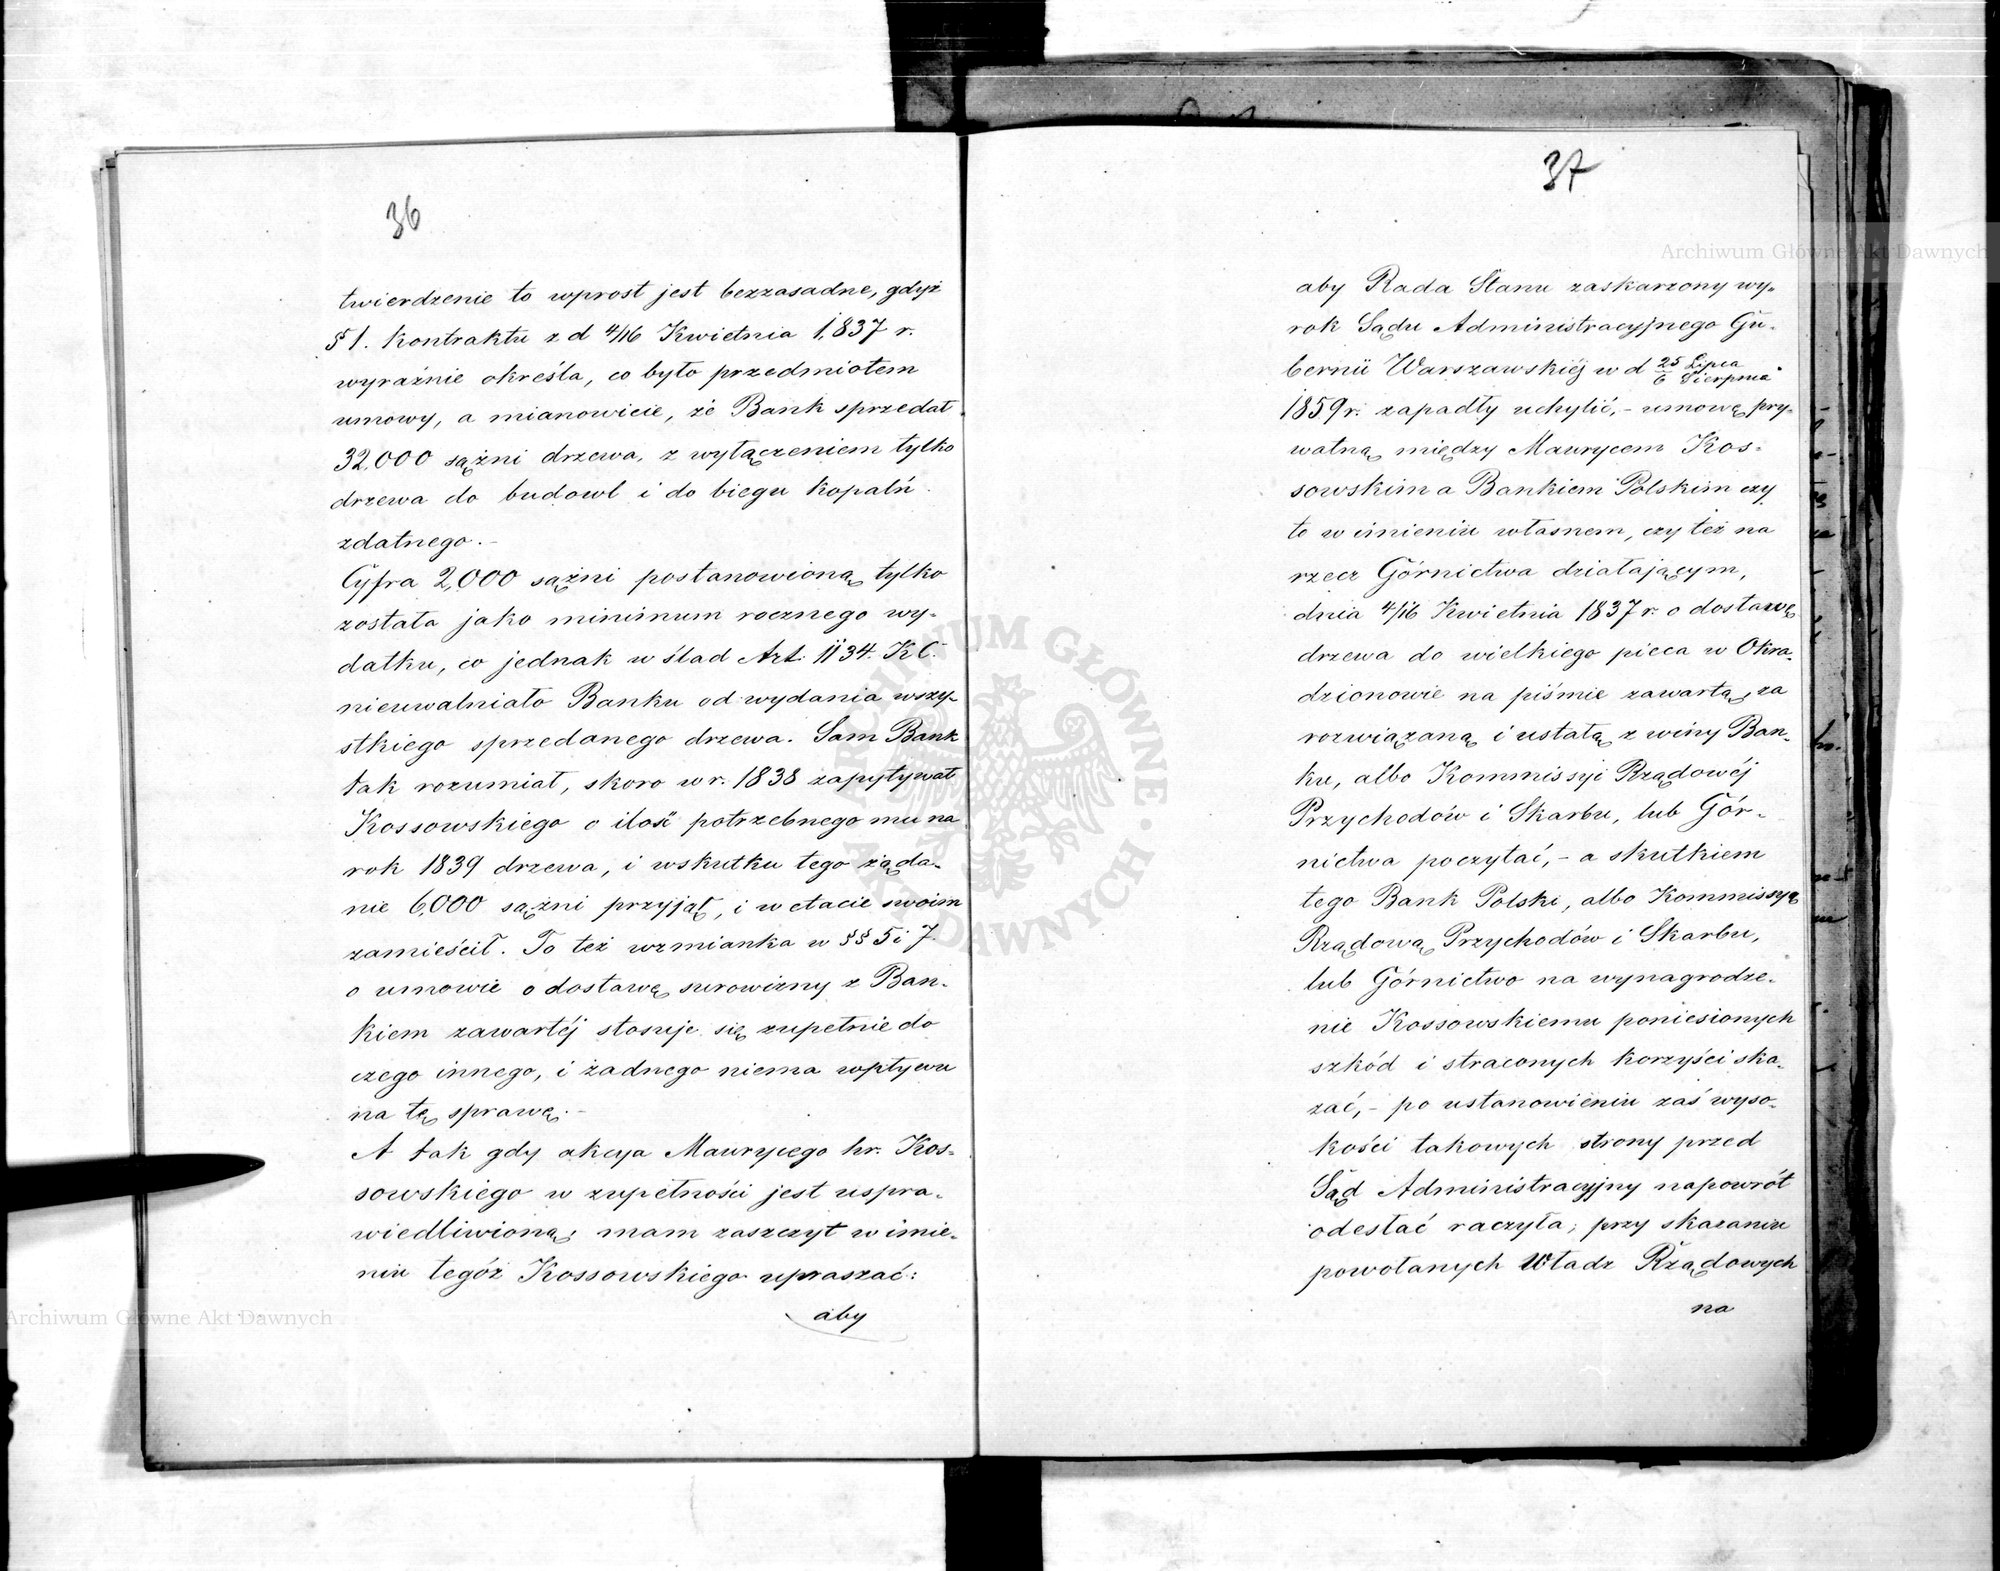 36
twierdzenie to wprost jest bezzasadne, gdyż
§ 1. Kontraktu z d 4/16 Kwietnia 1,837 r.
wyraźnie określa, co było przedmiotem
umowy, a mianowicie, że Bank sprzedał
32,000 sążni drzewa, z wyłączeniem tylko
drzewa do budowl i do biegu kopalń
zdatnego. –
Cyfra 2,000 sążni postanowioną tylko
została jako minimum rocznego wy-
datku, co jednak w ślad Art. 1134. K C.
nieuwalniało Banku od wydania wszy-
stkiego sprzedanego drzewa. Sam Bank
tak rozumiał, skoro w r. 1838 zapytywał
Kossowskiego o ilość potrzebnego mu na
rok 1839 drzewa, i wskutku tego żąda-
nie 6,000 sążni przyjął, i w etacie swoim
zamieścił. To też wzmianka w §§ 5 i 7.
o umowie o dostawę surowizny z Ban-
kiem zawartéj stosuje się zupełnie do
czego innego, i żadnego niema wpływu
na tę sprawę. –
A tak gdy akcya Maurycego hr. Kos-
sowskiego w zupełności jest uspra-
wiedliwioną; mam zaszczyt w imie-
niu tegóż Kossowskiego upraszać:
aby
37
aby Rada Stanu zaskarżony wy-
rok Sądu Administracyjnego Gu-
bernii Warszawskiéj w d 25 Lipca / 6 Sierpnia
1859 r. zapadły uchylić, – umowę pry-
watną między Maurycem Kos-
sowskim a Bankiem Polskim czy
to w imieniu własnem, czy też na
rzecz Górnictwa działającym,
dnia 4/16 Kwietnia 1837 r. o dostawę
drzewa do wielkiego pieca w Okra-
dzionowie na piśmie zawartą, za
rozwiązaną i ustałą z winy Ban-
ku, albo Kommissyi Rządowéj
Przychodów i Skarbu, lub Gór-
nictwa poczytać, – a skutkiem
tego Bank Polski, albo Kommissyę
Rządową Przychodów i Skarbu,
lub Górnictwo na wynagrodze-
nie Kossowskiemu poniesionych
szkód i straconych korzyści ska-
zać, – po ustanowieniu zaś wyso-
kości takowych strony przed
Sąd Administracyjny napowrót
odesłać raczyła; przy skazaniu
powołanych Władz Rządowych
na
Archiwum Główne Akt Dawnych
Archiwum Główne Akt Dawnych
ARCHIWUM GŁÓWNE AKT DAWNYCH